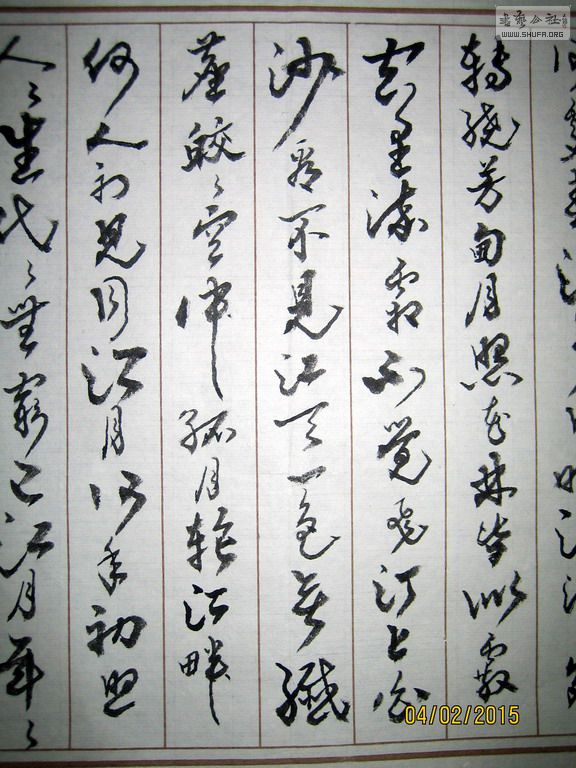 書藝公社
WWW.SHUFA.ORG
轉繞芳甸月照花林皆似霰
空里流霜不覺飛汀上白
沙看不見江天一色無纖
塵皎〻空中孤月輪江畔
何人初見月江月何年初照
人〻生代〻無窮已江月年〻
04/02/2015